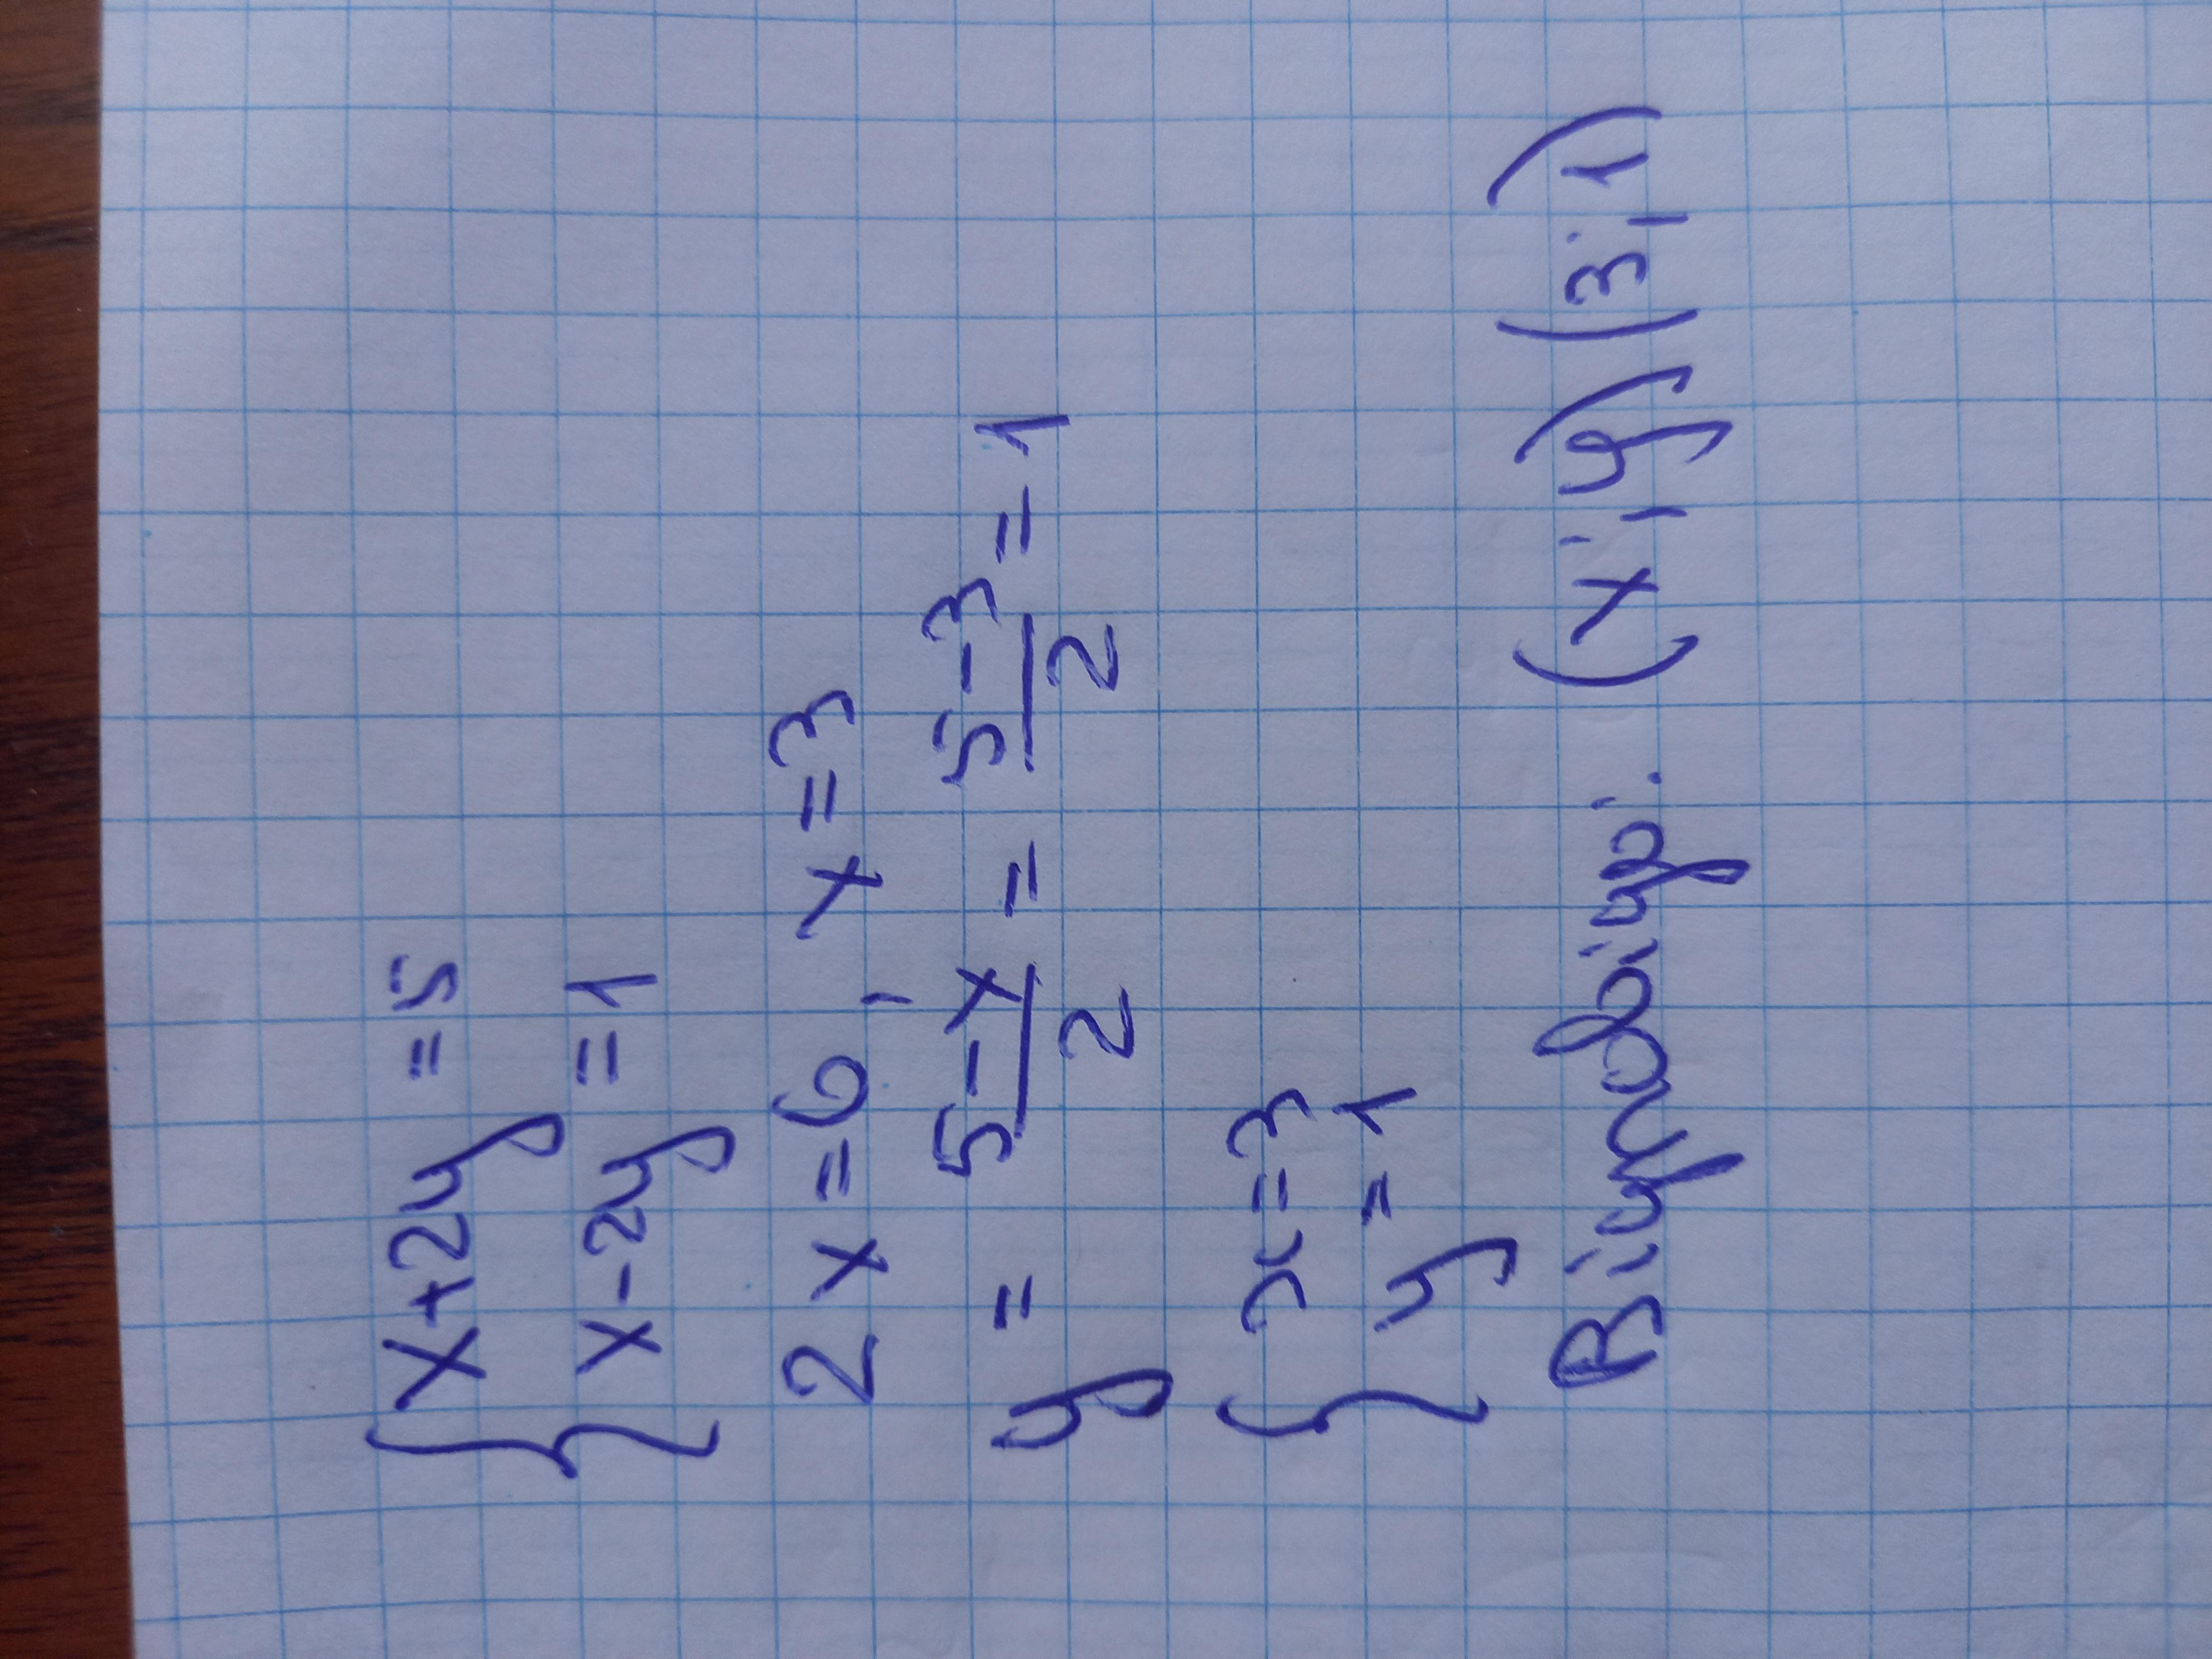 { x+2y =5
x-2y=1
2x=6, x=3
y = 5-x/2 = 5-3/2 = 1
{ x=3
y=1
Відповідь: (x; y) (3; 1)